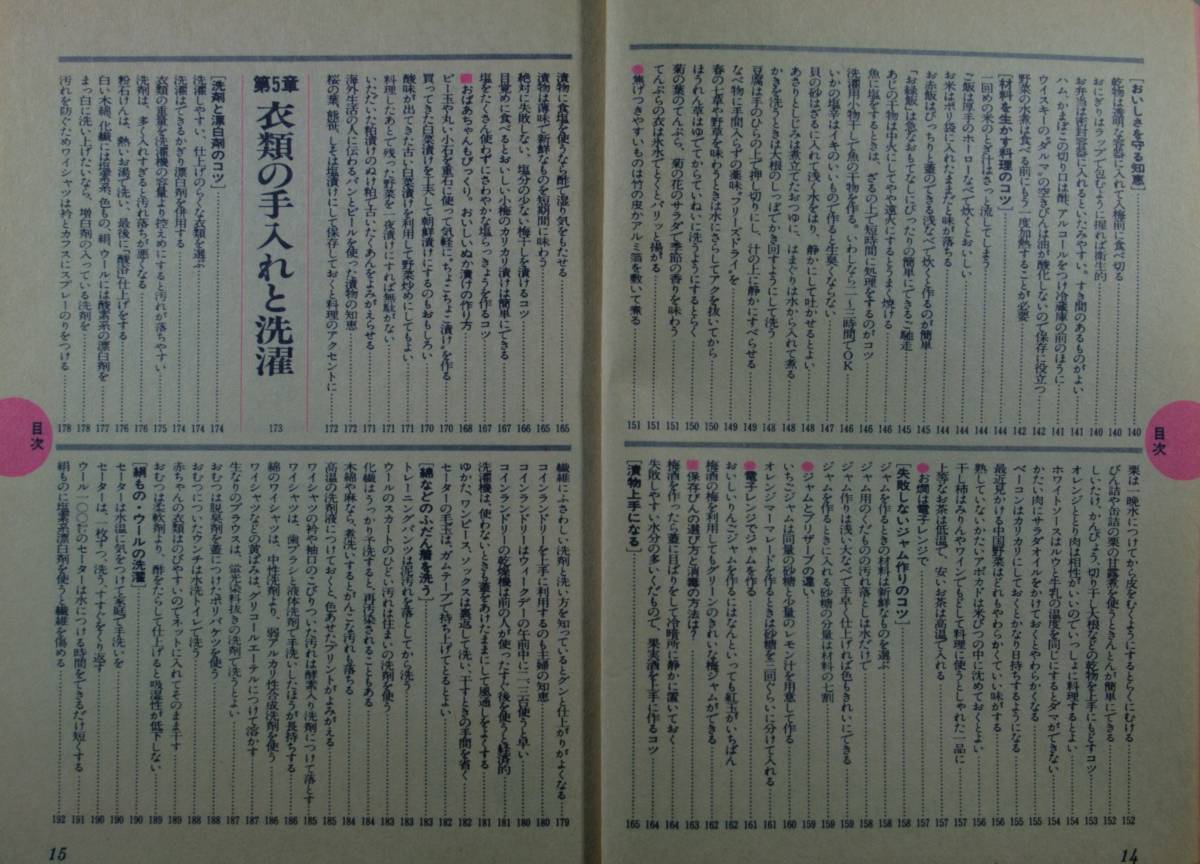 [おいしさを守る知恵]……140
乾物は適切な密閉容器に入れて入梅前に食べ切る……140
おにぎりはラップで包むように握れば衛生的……140
お弁当は密封容器に入れるといたみやすい。すき間のあるものがよい……140
ハム、かまぼこの切り口は酢、アルコールをつけ冷蔵庫の前のほうに……141
ウイスキーの“ダルマ”の空きびんは油が酸化しないので保存に役立つ……142
野菜の水煮は食べる前にもう一度加熱することが必要……142
[材料を生かす料理のコツ]……144
一回めの米のとぎ汁はさっと流してしまよう……144
ご飯は厚手のホーローなべで炊くとおいしい……144
お米はポリ袋に入れたままだと味が落ちる……144
お赤飯はぴっちりと蓋のできる浅なべで炊くと作るのが簡単……145
「お緑飯」は急なおもてなしにぴったりの簡単にできるご馳走……145
あじの干物は中火にしてやや遠火にするとうまく焼ける……146
魚に塩をするときは、ざるの上で短時間に処理をするのがコツ……146
洗濯用小物干しで魚の干物を作る。いわしなら二〜三時間でOK……146
いかの塩辛はイキのいいもので作ると生臭くならない……147
貝の砂はざるに入れて浅く水をはり、静かにして吐かせるとよい……147
あさりとしじみは煮立てたおつゆに、はまぐりは水から入れて煮る……148
かきを洗うときは大根のしっぽでかき回すようにして洗う……148
豆腐は手のひらの上で押し切りにし、汁の上に静かにすべらせる……149
なべ物に手間入らずの薬味“フリーズドライ”を……149
春の七草や野草を味わうときは水にさらしてアクを抜いてから……150
ほうれん草はゆでてからていねいに洗うようにするとらく……150
菊の葉のてんぷら、菊の花のサラダで季節の香りを味わう……151
てんぷらの衣は氷水でとくとパリッと揚がる……151
●焦げつきやすいものは竹の皮かアルミ箔を敷いて煮る……151
栗は一晩水につけてから皮をむくようにするとらくにむける……152
びん詰や缶詰の栗の甘露煮を使うときんとんが簡単にできる……152
しいたけ、かんぴょう、切り干し大根などの乾物を上手にもどすコツ……153
オレンジととり肉は相性がいいのでいっしょに料理するとよい……154
ホワイトソースはルウと牛乳の温度を同じにするとダマができない……154
かたい肉にサラダオイルをかけておくとやわらかくなる……155
ベーコンはカリカリにしておくとかなり日持ちするようになる……155
最近見かける中国野菜はどれもやわらかくていい味がする……156
熟していないかたいアボカドは米びつの中に沈めておくとよい……156
干し柿はみりんやワインでもどして料理に使うとしゃれた一品に……157
上等なお茶は低温で、安いお茶は高温で入れる……157
●お燗は電子レンジで……157
[失敗しないジャム作りのコツ]……158
ジャムを作るときの材料は新鮮なものを選ぶ……158
ジャム用のくだものの汚れ落としは水だけで……158
ジャム作りは浅い大なべで手早く仕上げれば色もきれいにできる……159
ジャムを作るときに入れる砂糖の分量は材料の七割……159
●ジャムとプリザーブの違い……159
いちごジャムは同量の砂糖と少量のレモン汁を用意して作る……160
オレンジマーマレードを作るときは砂糖を三回ぐらいに分けて入れる……161
●電子レンジでジャムを作る……161
おいしいりんごジャムを作るにはなんといっても紅玉がいちばん……162
梅酒の梅を利用してもグリーンのきれいな梅ジャムができる……162
■保存びんの選び方と消毒の方法は?……163
梅酒を作ったら蓋に目ばりをして冷暗所に静かに置いておく……164
失敗しやすい水分の多いくだもので、果実酒を上手に作るコツ……164
[漬物上手になる]……165
目次
14
漬物に食塩を使うなら酢で湿り気をもたせる……165
漬物は薄味で新鮮なものを短期間に味わう……165
絶対に失敗しない、塩分の少ない梅干しを漬けるコツ……166
目覚めに食べるとおいしい小梅のカリカリ漬けは簡単にできる……167
塩をたくさん使わずにさわやかな塩らっきょうを作るコツ……167
■おばあちゃんもびっくり。おいしいぬか漬けの作り方……168
ビー玉や丸い小石を重石に使って気軽に“ちょこちょこ漬け”を作る……170
買ってきた白菜漬けを工夫して朝鮮漬けにするのもおもしろい……170
酸味が出てきた古い白菜漬けを利用して野菜炒めにしてもよい……171
料理したあとで残った野菜を一夜漬けにすれば無駄がない……171
いただいた粕漬けのぬけ粕で古いたくあんをよみがえらせる……171
海外生活の人に伝わるパンとビールを使った漬物の知恵……172
桜の葉、熊笹、しそは塩漬けにして保存しておくと料理のアクセントに……172
第5章 衣類の手入れと洗濯……173
[洗剤と漂白剤のコツ]……174
洗濯しやすい、仕上げのらくな衣類を選ぶ……174
洗濯はできるかぎり漂白剤を併用する……174
衣類の重量を洗濯機の容量より控えめにすると汚れが落ちやすい……175
洗剤は、多く入れすぎると汚れ落ちが悪くなる……176
粉石けんは、熱いお湯で洗い、最後に“酸浴”仕上げをする……176
白い木綿、化繊には塩素系、色もの、絹、ウールには酸素系の漂白剤を……177
まっ白に洗い上げたいなら、増白剤の入っている洗剤を……178
汚れを防ぐためワイシャツは衿とカフスにスプレーのりをつける……178
繊維にふさわしい洗剤と洗い方を知っているとグンと仕上がりがよくなる……179
コインランドリーを上手に利用するのも主婦の知恵……180
コインランドリーはウィークデーの午前中に二、三台使うと早い……180
コインランドリーの乾燥機は前の人が使ったすぐ後を使うと経済的……181
洗濯機は、使わないときも蓋をあけたままにして風通しをよくする……181
ゆかた、ワンピース、ソックスは裏返して洗い、干すときの手間を省く……182
セーターの毛玉は、ガムテープで持ち上げてとるとよい……182
[綿などのふだん着を洗う]……183
トレーニングパンツは泥汚れを落としてから洗う……183
ウールのスカートのひどい汚れは住まいの洗剤を使う……183
化繊はうっかり予洗すると再汚染されることもある……184
木綿や麻なら、煮洗いするとがんこな汚れも落ちる……184
高温の洗剤液につけておくと、色あせたプリントがよみがえる……185
ワイシャツの衿や袖口のこびりついた汚れは酵素入り洗剤につけて落とす……185
ワイシャツは、歯ブラシと液体洗剤で手洗いしたほうが長持ちする……186
綿のワイシャツは、中性洗剤より、弱アルカリ性合成洗剤を使う……186
ワイシャツなどの黄ばみは、グリコールエーテルにつけて溶かす……187
生なりのブラウスは、蛍光染料抜きの洗剤で洗うとよい……187
おむつは脱臭剤を蓋につけたポリバケツを使う……188
おむつについたウンチは水洗トイレで洗う……188
赤ちゃんの衣類はのびやすいのでネットに入れてそのまま干す……189
おむつは柔軟剤より、酢をたらして仕上げると吸湿性が低下しない……189
[絹もの・ウールの洗濯]……190
セーターは水温に気をつけて家庭で手洗いを……190
セーターは、一枚ずつ、洗う、すすぐをくり返す……190
ウール一〇〇％のセーターは水につける時間をできるだけ短くする……191
絹ものに塩素系漂白剤を使うと繊維を傷める……192
目次
15